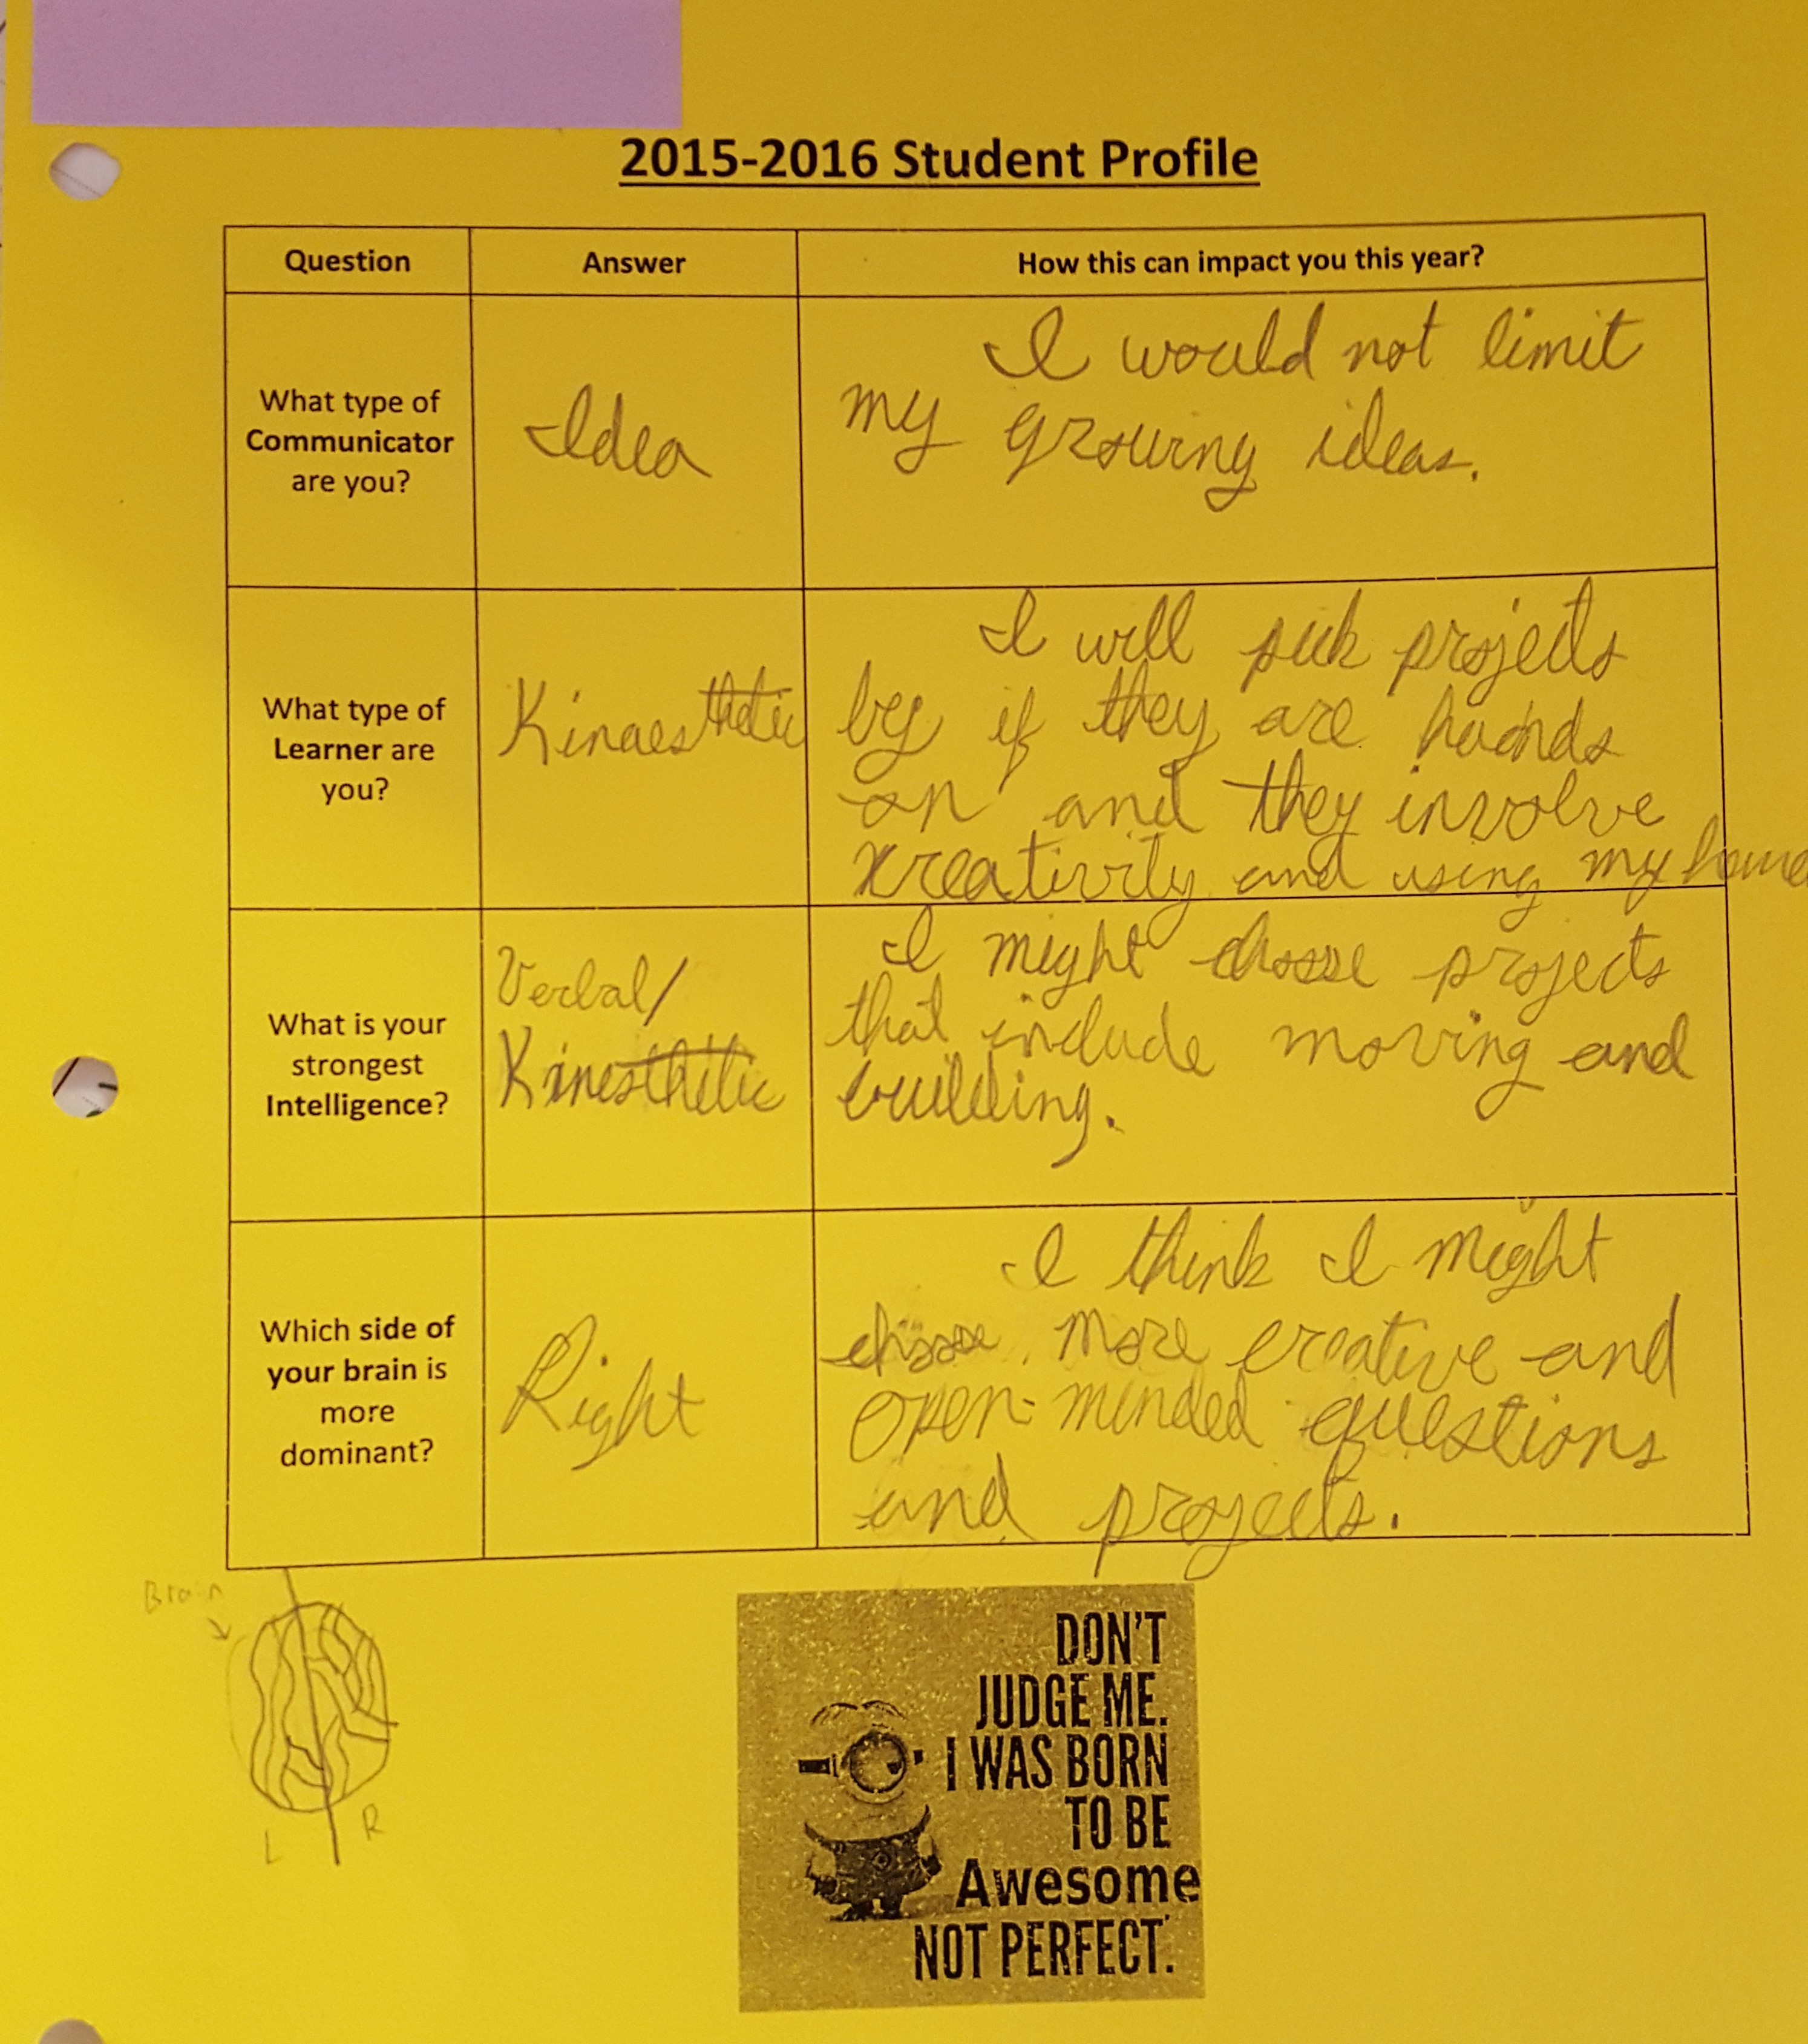 2015-2016 Student Profile
Question
Answer
How this can impact you this year?
What type of
Communicator
are you?
Idea
I would not limit
my growing ideas.
What type of
Learner are
you?
Kinaesthetic
I will pick projects
by if they are hands
on and they involve
creativity and using my
What is your
strongest
Intelligence?
Verbal/
Kinesthetic
I might choose projects
that include moving and
building.
Which side of
your brain is
more
dominant?
Right
I think I might
choose more creative and
open-minded questions
and projects.
Brain
L
R
DON'T
JUDGE ME.
I WAS BORN
TO BE
Awesome
NOT PERFECT.